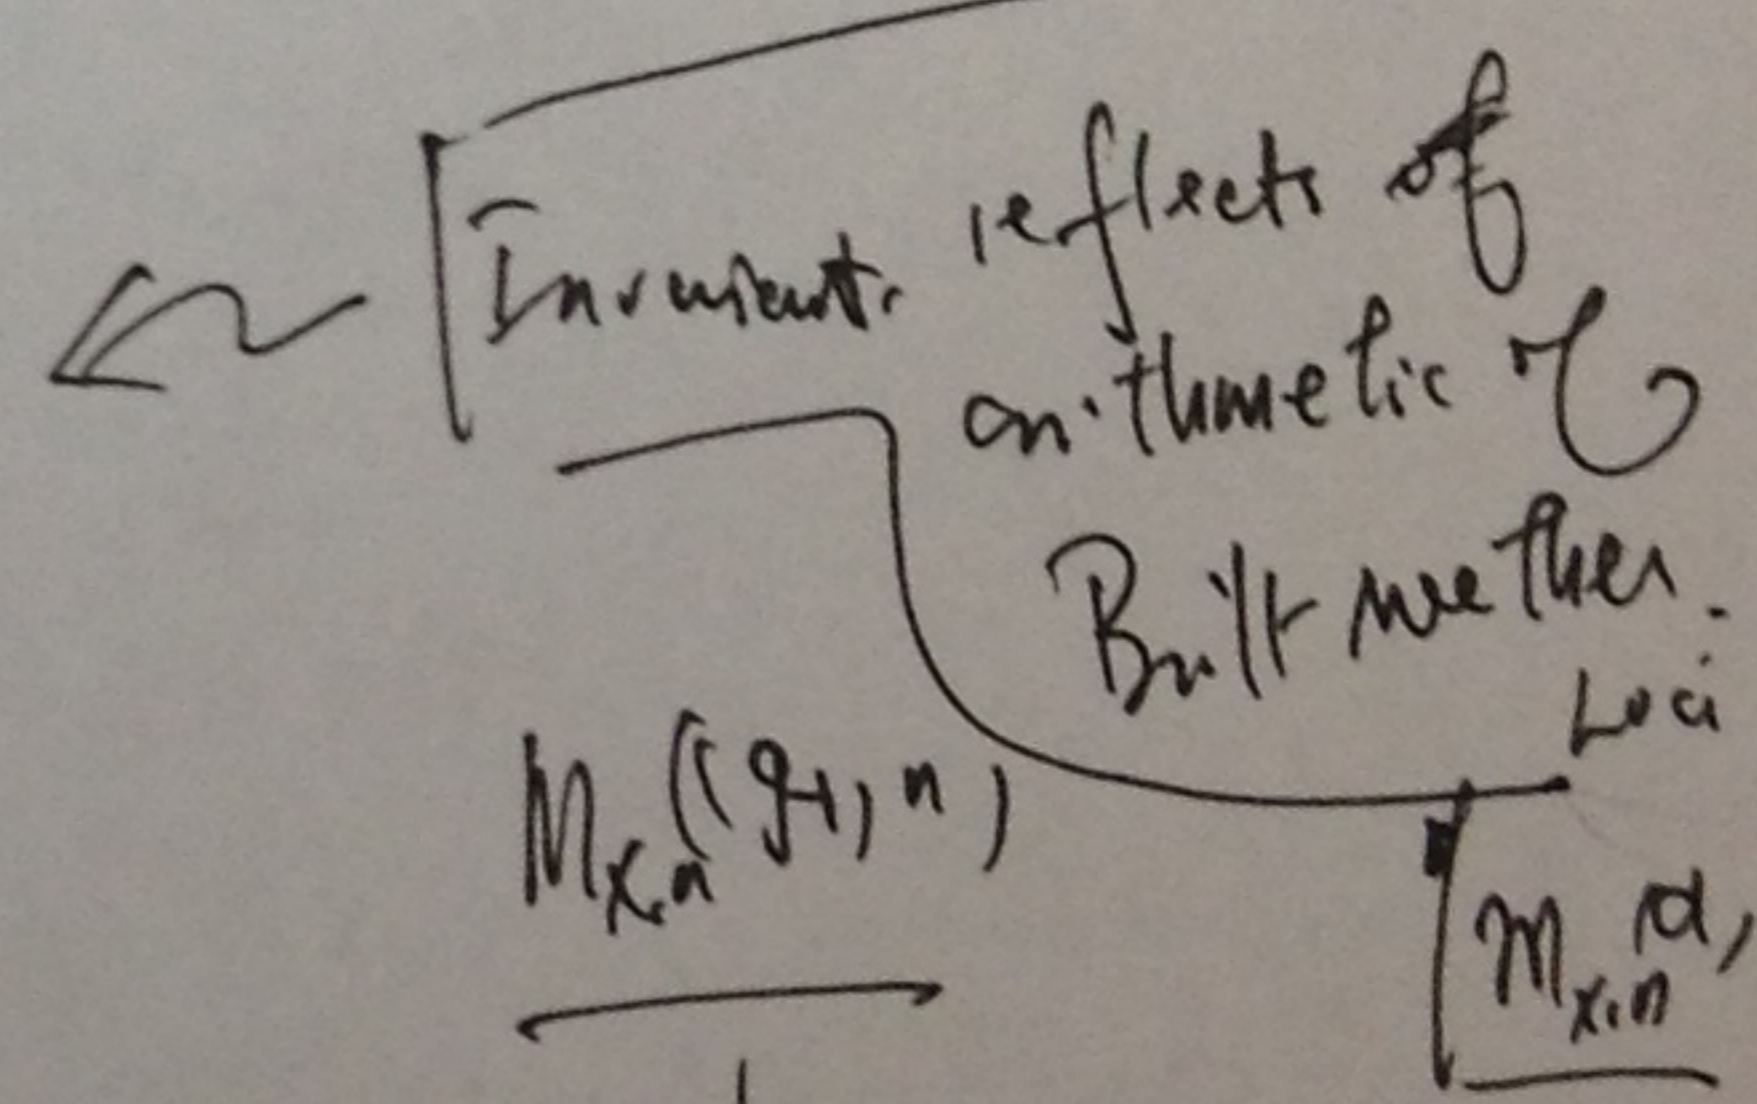 Invariants reflects of
arithmetic of
Built
Loci
M_{x,n}((g-1, n)
M_{x,n}